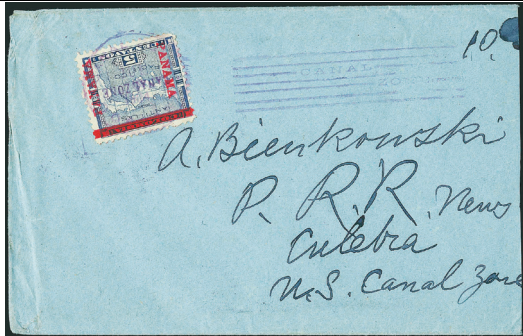 10.
PANAMA
5
CANAL ZONE
PANAMA
CANAL
ZO
A. Bienkowski
P. R. R. News
Culebra
U.S. Canal Zone